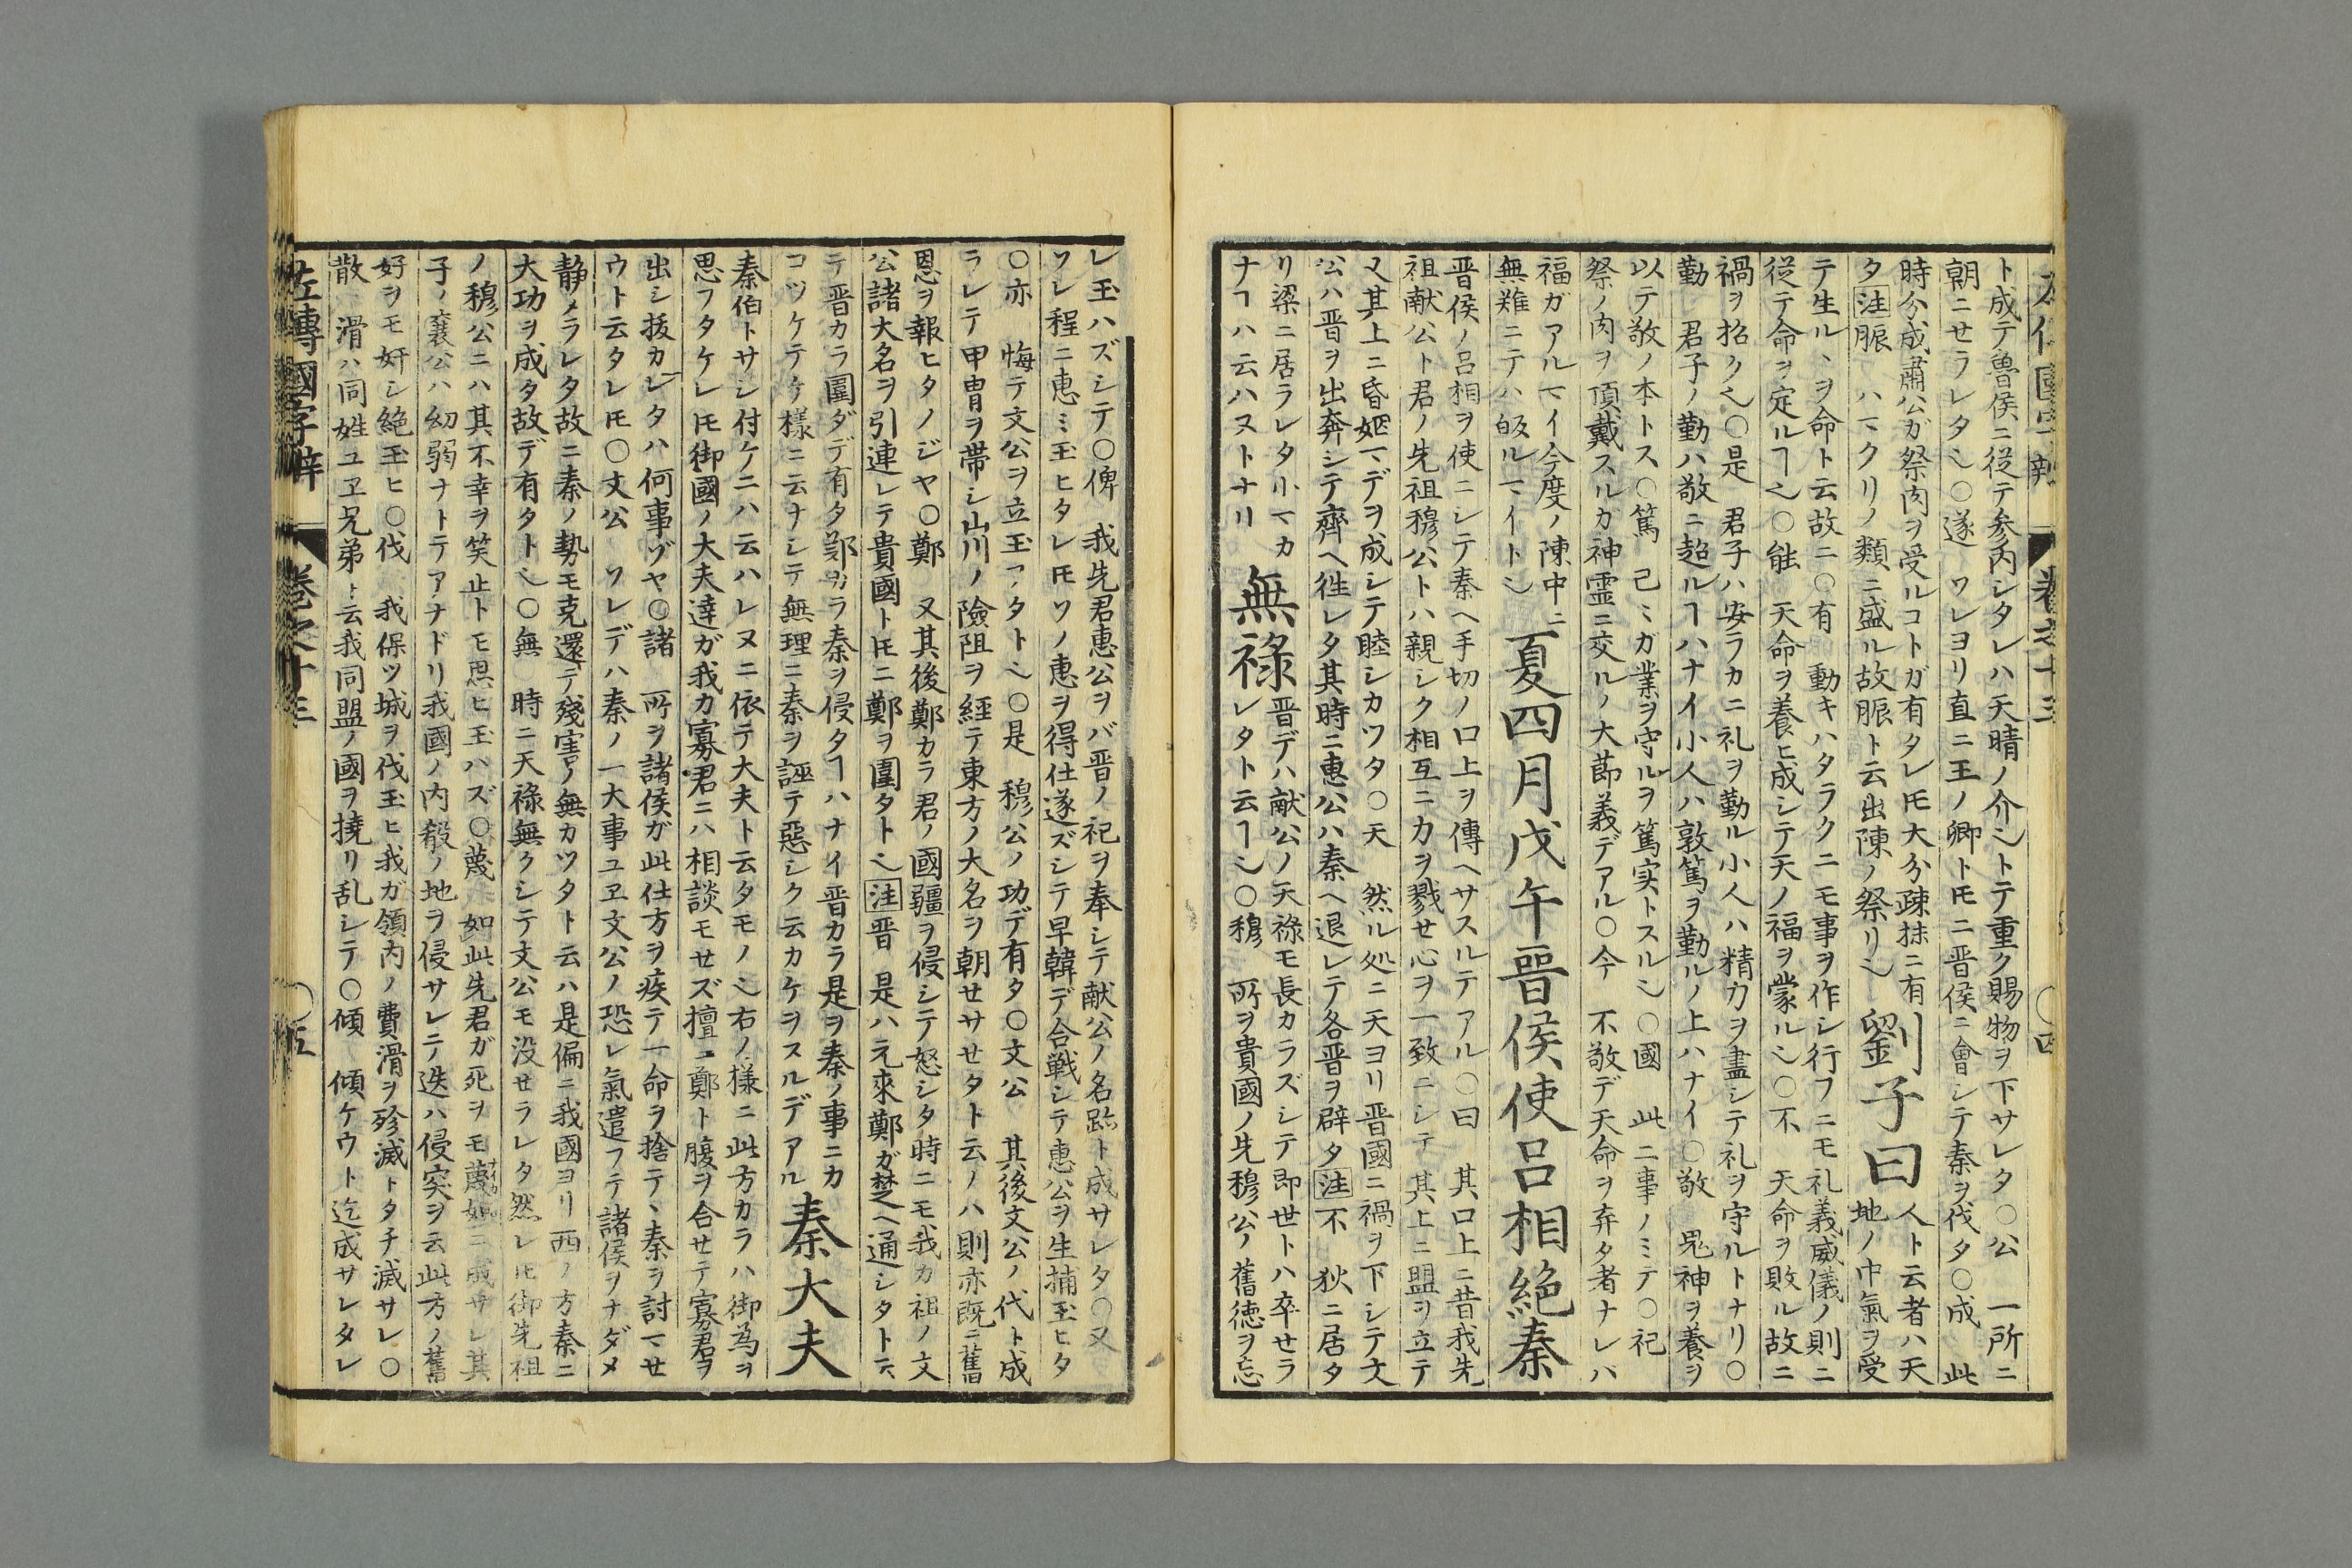 ト成テ魯侯ニ従テ参内シタレハ天晴ノ介乄トテ重ク賜物ヲ下サレタ〇公 一所ニ
朝ニせラレタ乄〇遂 ソレヨリ直ニ王ノ卿トモニ晋侯ニ會シテ秦ヲ伐タ〇成 此
時分成肅公ガ祭肉ヲ受ルコトガ有タレ𪜈大分疎抹ニ有
タ注脤 ハマクリノ類ニ盛ル故脤ト云出陳ノ祭リ乄
劉子曰
人ト云者ハ天
地ノ中氣ヲ受
テ生ルヽヲ命ト云故ニ〇有 動キハタラクニモ事ヲ作シ行フニモ礼義威儀ノ則ニ
従テ命ヲ定ルヿ乄〇能 天命ヲ養ヒ成シテ天ノ福ヲ蒙ル乄〇不 天命ヲ敗ル故ニ
禍ヲ招ク乄〇是 君子ハ安ラカニ礼ヲ勤ル小人ハ精力ヲ盡シテ礼ヲ守ルトナリ〇
勤 君子ノ勤ハ敬ニ超ルヿハナイ小人ハ敦篤ヲ勤ルノ上ハナイ〇敬 鬼神ヲ養ヲ
以テ敬ノ本トス〇篤 己ミガ業ヲ守ルヲ篤実トスル乄〇國 此二事ノミテ〇祀
祭ノ肉ヲ頂戴スルガ神霊ニ交ルノ大節義デアル〇今 不敬デ天命ヲ弃タ者ナレバ
福ガアルマイ今度ノ陳中ニ
無難ニテハ皈ルマイト乄
夏四月戊午晉侯使呂相絶秦
晋侯ノ呂相ヲ使ニシテ秦ヘ手切ノ口上ヲ傳ヘサスルテアル〇曰 其口上ニ昔我先
祖献公ト君ノ先祖穆公トハ親シク相互ニカヲ戮せ心ヲ一致ニシテ其上ニ盟ヲ立テ
又其上ニ昏姻マデヲ成シテ睦シカツタ〇天 然ル処ニ天ヨリ晋國ニ禍ヲ下シテ文
公ハ晋ヲ出奔シテ齊ヘ徃レタ其時ニ惠公ハ秦ヘ退レテ各晋ヲ辟タ注不 狄ニ居タ
リ梁ニ居ラレタリマカ
ナヿハ云ハヌトナリ
無祿
晋デハ献公ノ天祿モ長カラズシテ即世トハ卒せラ
レタト云ヿ乄〇穆 所ヲ貴國ノ先穆公ノ舊徳ヲ忘
レ玉ハズシテ〇俾 我先君惠公ヲバ晋ノ祀ヲ奉シテ献公ノ名跡ト成サレタ〇又
ソレ程ニ惠ミ玉ヒタレ𪜈ソノ惠ヲ得仕遂ズシテ早韓デ合戦シテ惠公ヲ生捕玉ヒタ
〇亦 悔テ文公ヲ立玉フタト乄〇是 穆公ノ功デ有タ〇文公 其後文公ノ代ト成
ラレテ甲冑ヲ帯シ山川ノ險阻ヲ經テ東方ノ大名ヲ朝せサせタト云ノハ則亦既ニ舊
恩ヲ報ヒタノジヤ〇鄭 又其後鄭カラ君ノ國疆ヲ侵シテ怒シタ時ニモ我カ祖ノ文
公諸大名ヲ引連レテ貴國ト𪜈ニ鄭ヲ圍タト乄注晋 是ハ元來鄭ガ楚ヘ通シタト云
テ晋カラ圍ダデ有タ鄭カラ秦ヲ侵タヿハナイ晋カラ是ヲ秦ノ事ニカ
コツケテケ樣ニ云ナシテ無理ニ秦ヲ誣テ惡シク云カケヲスルデアル
秦大夫
秦伯トサシ付ケニハ云ハレヌニ依テ大夫ト云タモノ乄右ノ樣ニ此方カラハ御為ヲ
思フタケレ𪜈御國ノ大夫達ガ我カ寡君ニハ相談モせズ擅ニ鄭ト腹ヲ合せテ寡君ヲ
出シ拔カレタハ何事ヅヤ〇諸 所ヲ諸侯ガ此仕方ヲ疾テ一命ヲ捨テヽ秦ヲ討マせ
ウト云タレ𪜈〇文公 ソレデハ秦ノ一大事ユヱ文公ノ恐レ氣遣フテ諸侯ヲナダメ
静メラレタ故ニ秦ノ勢モ克還テ殘害ノ無カツタト云ハ是偏ニ我國ヨリ西ノ方秦ニ
大功ヲ成タ故デ有タト乄〇無 時ニ天祿無クシテ文公モ没せラレタ然レ𪜈御先祖
ノ穆公ニハ其不幸ヲ笑止トモ思ヒ玉ハズ〇蔑 如此先君ガ死ヲモ蔑如ニ成サレ其
子ノ襄公ハ幼弱ナトテアナドリ我國ノ内殽ノ地ヲ侵サレテ迭ハ侵突ヲ云此方ノ舊
好ヲモ奸シ絶玉ヒ〇伐 我保ツ城ヲ伐玉ヒ我ガ領内ノ費滑ヲ殄滅トタチ滅サレ〇
散 滑ハ同姓ユヱ兄弟ト云我同盟ノ國ヲ撓リ乱シテ〇傾 傾ケウト迄成サレタレ
左傳國字辯 巻之十三 〇五